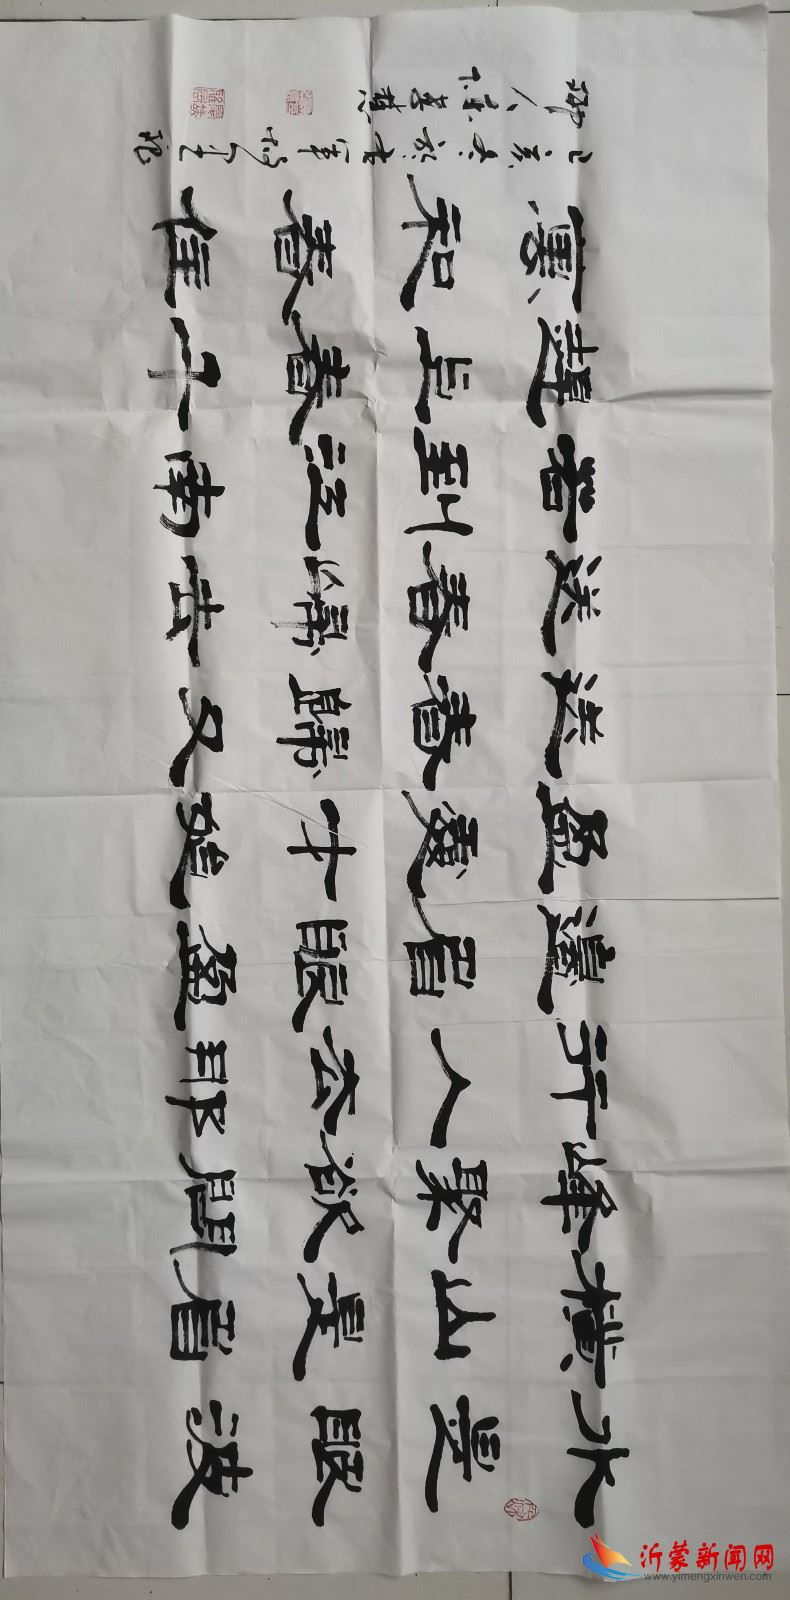 水是眼波
橫山是眉
峰聚欲問
行人去那
邊眉眼盈
盈處才始
送春歸又
送春歸去
若到江南
趕上春千
萬和春住
己亥冬於
沂蒙新闻网
www.yimengxinwen.com